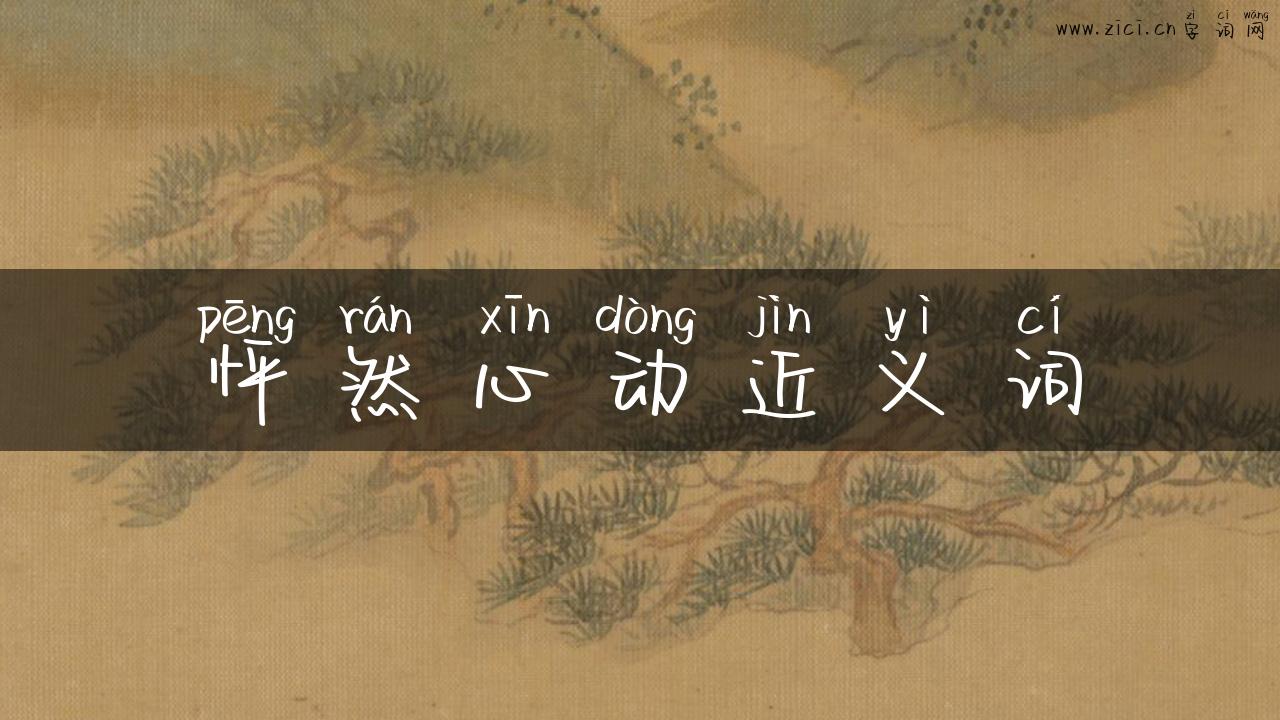 zì cí wǎng
www.zici.cn 字词网
pēng rán xīn dòng jìn yì cí
怦然心动近义词